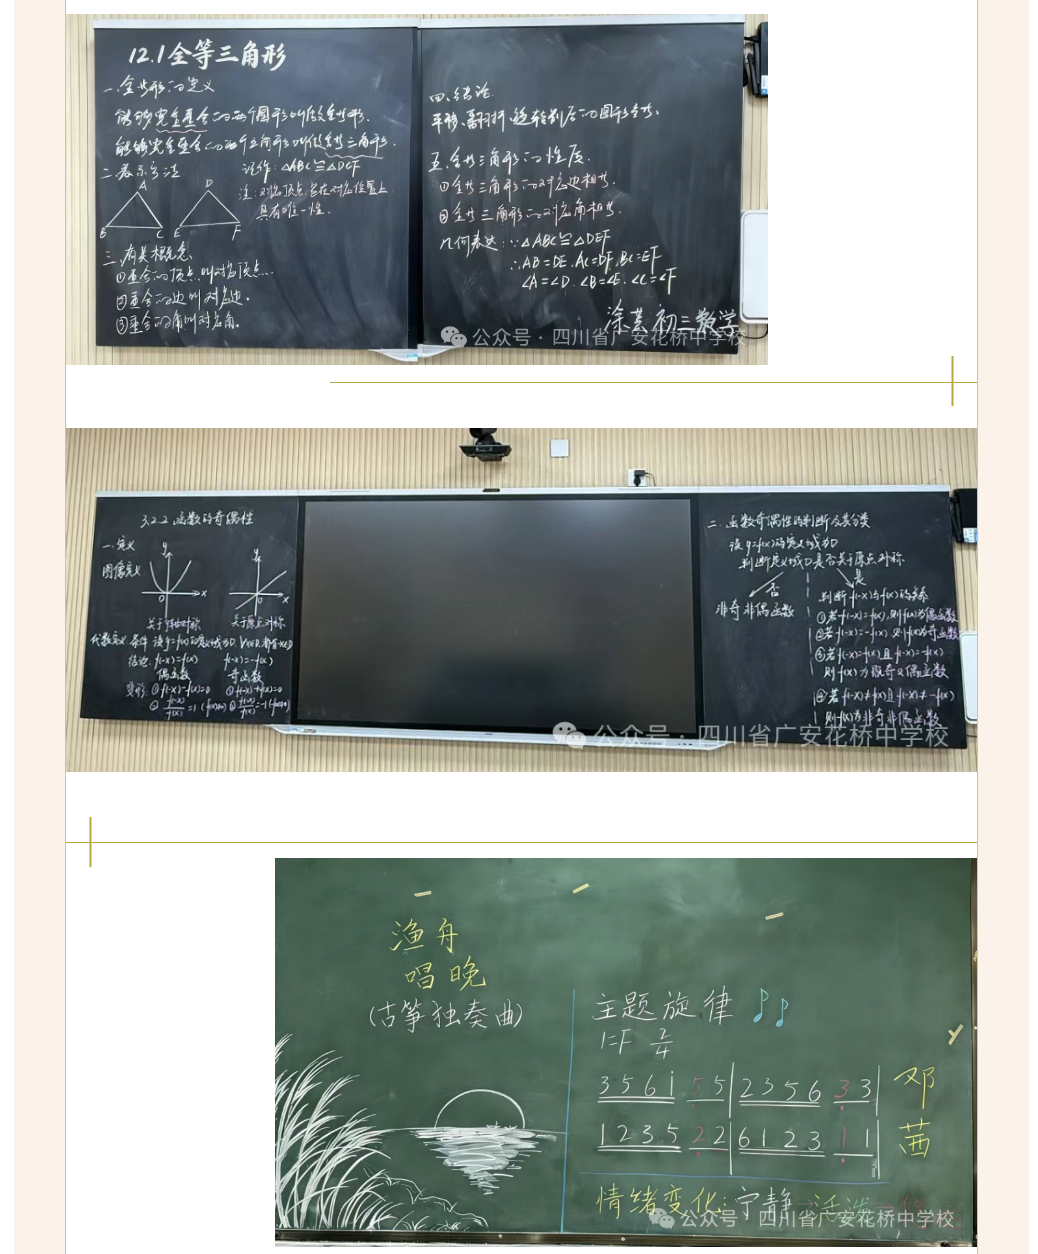 12.1全等三角形
一.全等形的定义
能够完全重合的两个图形叫做全等形.
能够完全重合的两个三角形叫做全等三角形.
二.表示方法
记作:△ABC≌△DEF
注:对应顶点写在对应位置上
具有唯一性.
A
D
B C E F
三.有关概念
①重合的顶点叫对应顶点...
②重合的边叫对应边.
③重合的角叫对应角.
四.结论.
平移、翻折、旋转前后的图形全等.
五.全等三角形的性质.
①全等三角形的对应边相等.
②全等三角形的对应角相等.
几何表达:∵△ABC≌△DEF
∴AB=DE.AC=DF.BC=EF
∠A=∠D.∠B=∠E.∠C=∠F
涂芸 初三数学
公众号·四川省广安花桥中学校
3.2.2 函数的奇偶性
一.定义
图像定义
y
x
O
y
x
O
关于y轴对称 关于原点对称
代数定义.条件:设y=f(x)的定义域为D.∀x∈D,都有-x∈D
结论:f(-x)=f(x) f(-x)=-f(x)
偶函数 奇函数
变形:①f(-x)-f(x)=0 ①f(-x)+f(x)=0
②f(-x)/f(x)=1(f(x)≠0) ②f(-x)/f(x)=-1(f(x)≠0)
二.函数奇偶性的判断及其分类
设y=f(x)的定义域为D
判断定义域D是否关于原点对称
否 是
非奇非偶函数
判断f(-x)与f(x)的关系
①若f(-x)=f(x),则f(x)为偶函数
②若f(-x)=-f(x),则f(x)为奇函数
③若f(-x)=f(x)且f(-x)=-f(x)
则f(x)为既奇又偶函数
④若f(-x)≠f(x)且f(-x)≠-f(x)
则f(x)为非奇非偶函数
公众号·四川省广安花桥中学校
渔舟
唱晚
(古筝独奏曲)
主题旋律
1=F 2/4
3 5 6 i 5 5 | 2 3 5 6 3 3 |
1 2 3 5 2 2 | 6 1 2 3 1 1 |
邓
茜
情绪变化:宁静—活泼
公众号·四川省广安花桥中学校